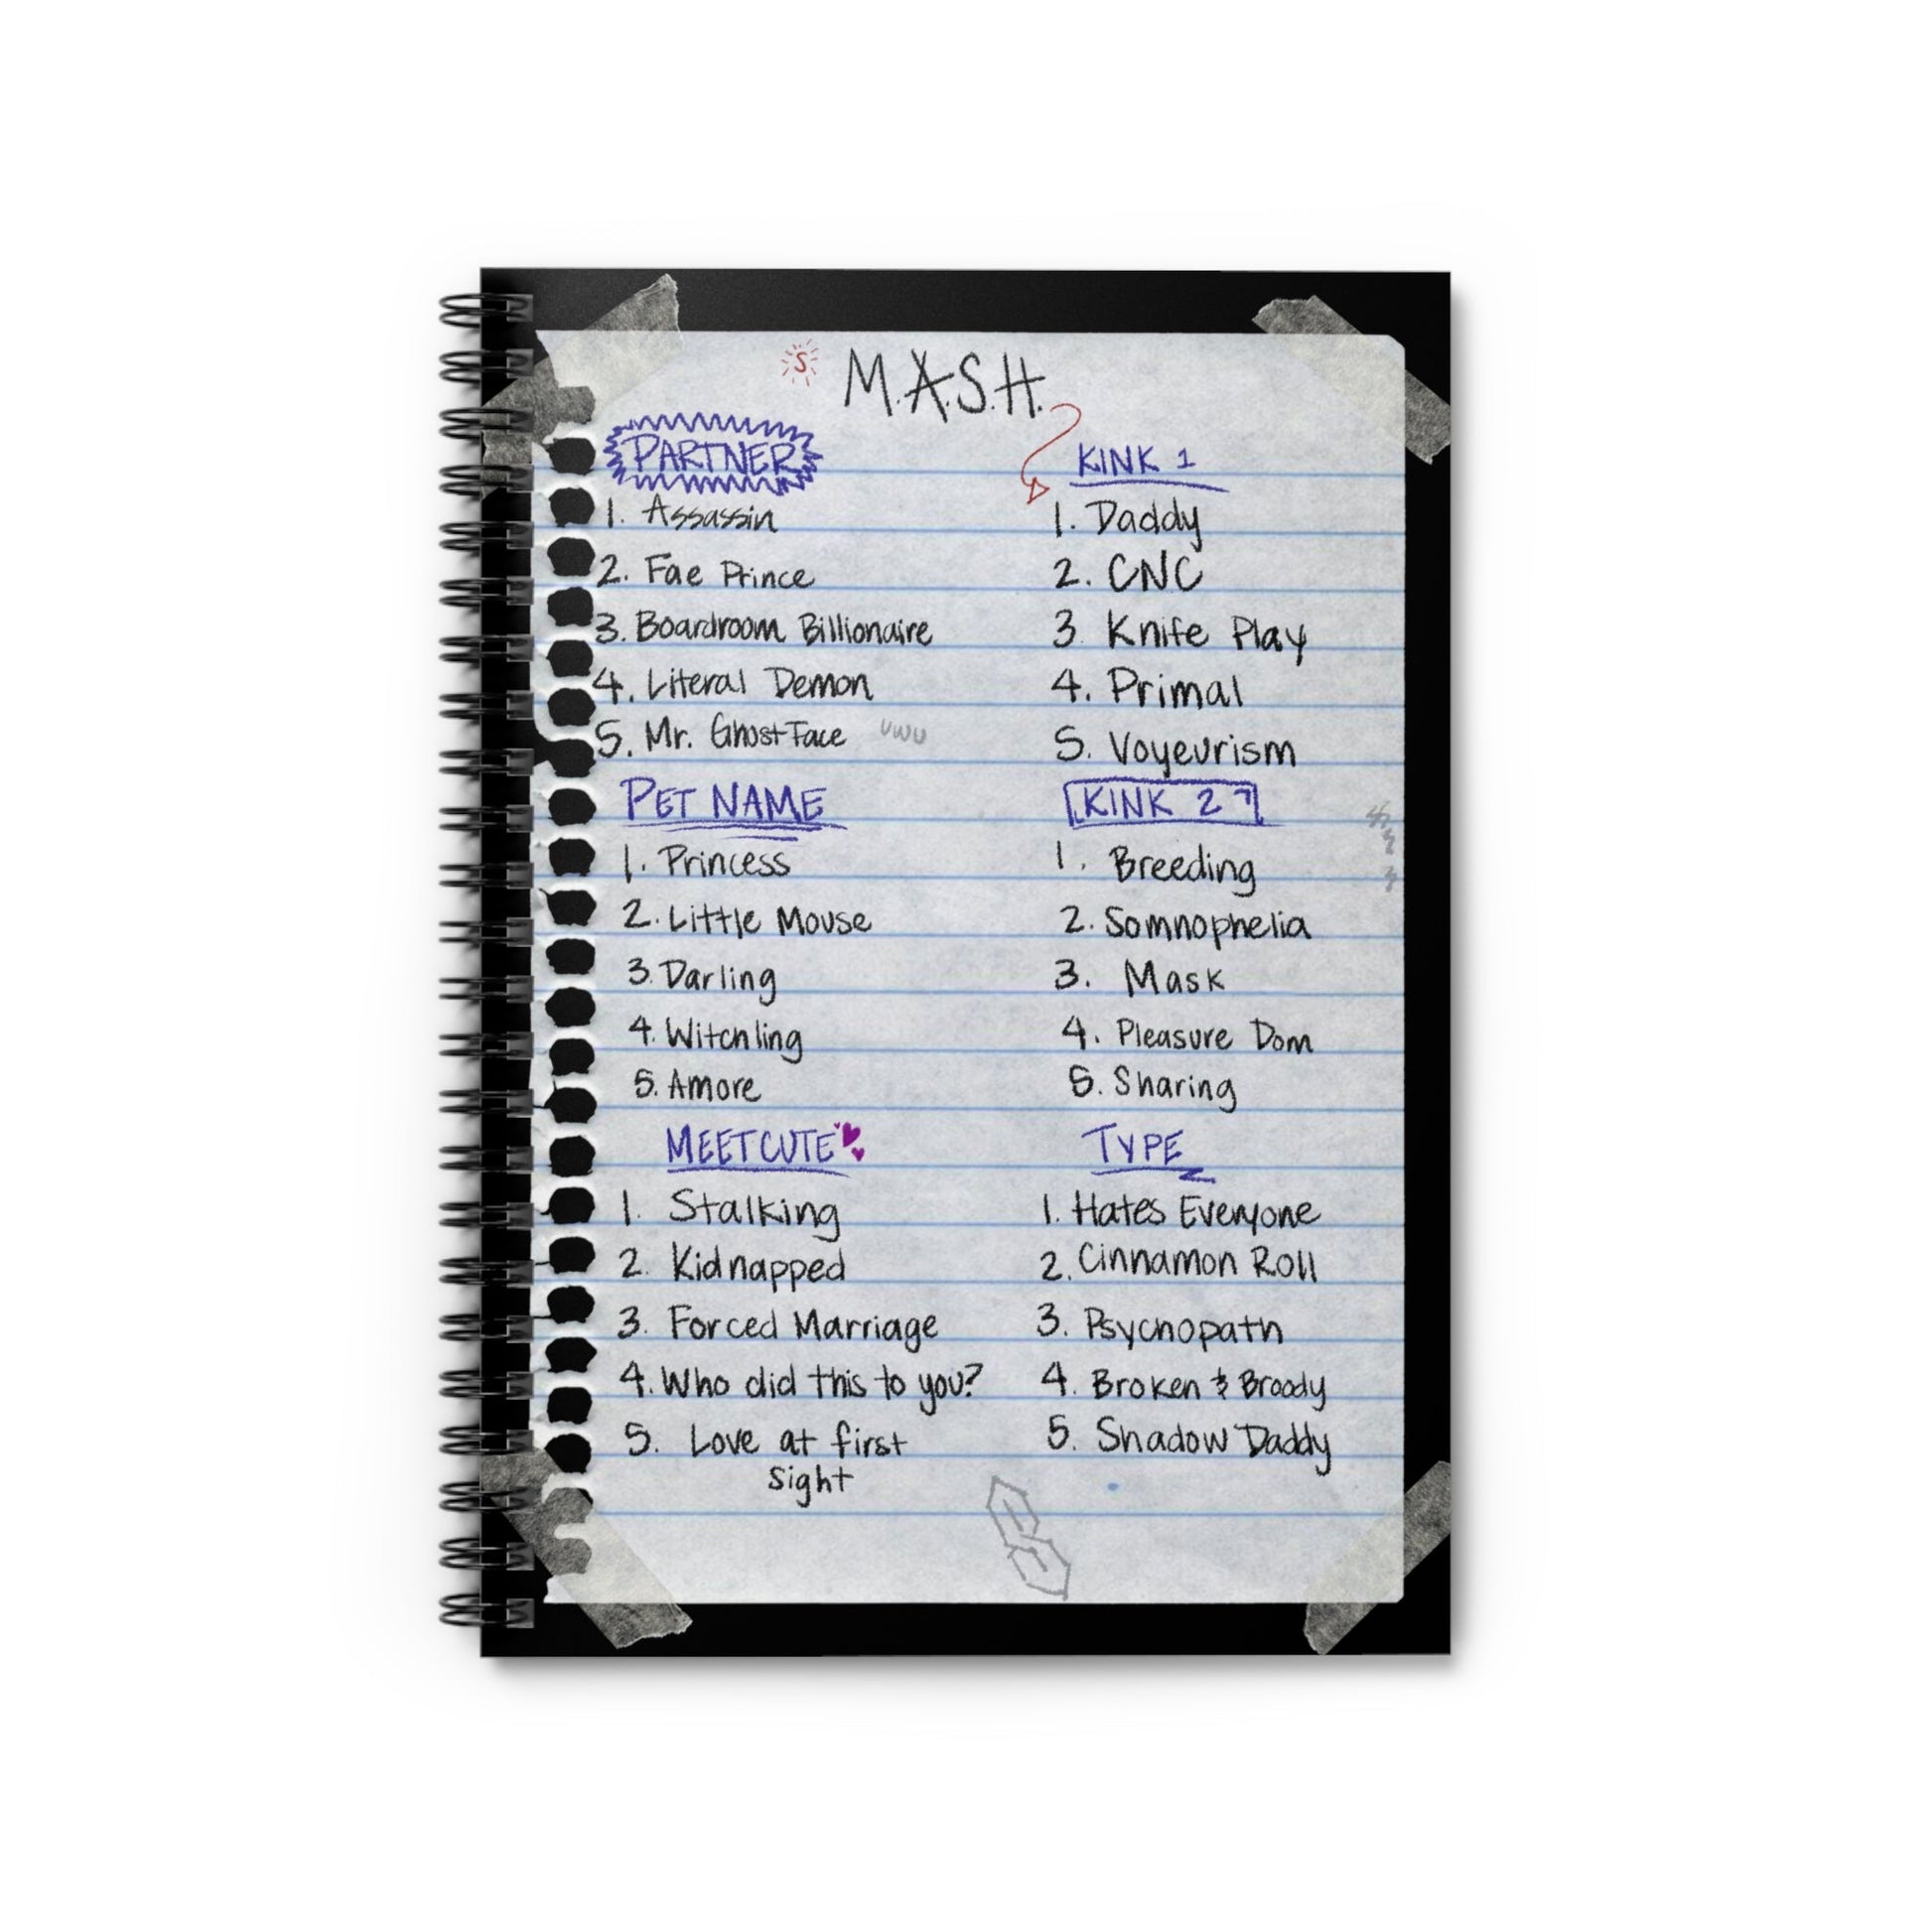 S
M.A.S.H.
PARTNER
1. Assassin
2. Fae Prince
3. Boardroom Billionaire
4. Literal Demon
5. Mr. GhostFace uwu
PET NAME
1. Princess
2. Little Mouse
3. Darling
4. Witchling
5. Amore
MEETCUTE
1. Stalking
2. Kidnapped
3. Forced Marriage
4. Who did this to you?
5. Love at first
sight
KINK 1
1. Daddy
2. CNC
3 Knife Play
4. Primal
5. Voyeurism
KINK 2
1. Breeding
2. Somnophelia
3. Mask
4. Pleasure Dom
5. Sharing
TYPE
1. Hates Everyone
2. Cinnamon Roll
3. Psychopath
4. Broken & Broody
5. Shadow Daddy